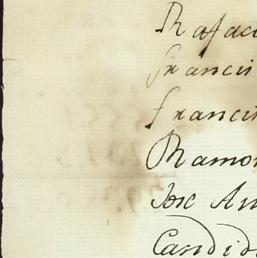 Rafae
francis
francis
Ramon
Jose An
Candid